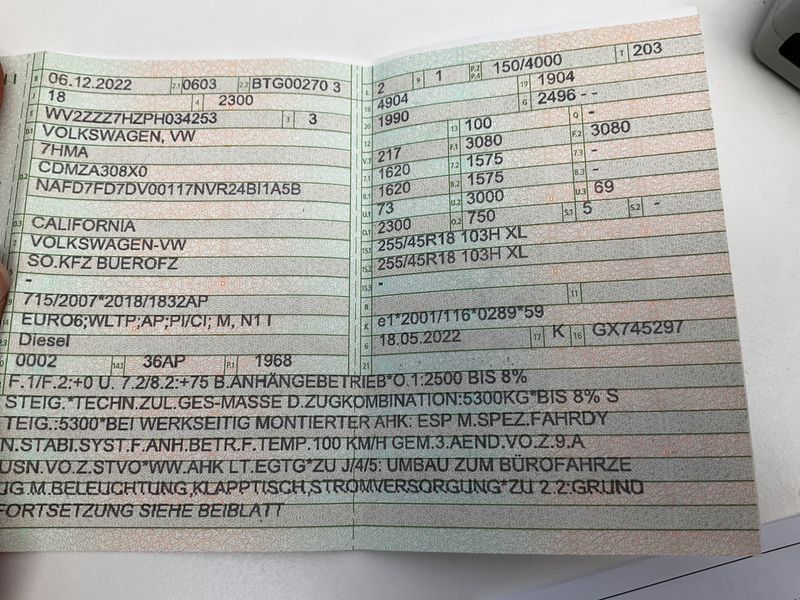 B 06.12.2022 2.1 0603 2.2 BTG00270 3
18 4 2300
WV2ZZZ7HZPH034253 3 3
D.1 VOLKSWAGEN, VW
7HMA
D.2 CDMZA308X0
NAFD7FD7DV00117NVR24BI1A5B
D.3 CALIFORNIA
2 VOLKSWAGEN-VW
SO.KFZ BUEROFZ
-
715/2007*2018/1832AP
EURO6;WLTP;AP;PI/CI; M, N1 I
Diesel
0002 14.1 36AP P.1 1968
L 2 9 1 P.2 P.4 150/4000 T 203
18 4904 19 1904
20 1990 G 2496 - -
12 - 13 100 Q -
V.7 217 F.1 3080 F.2 3080
7.1 1620 7.2 1575 7.3 -
8.1 1620 8.2 1575 8.3 -
U.1 73 U.2 3000 U.3 69
O.1 2300 O.2 750 S.1 5 S.2 -
15.1 255/45R18 103H XL
15.2 255/45R18 103H XL
15.3 -
R 11
K e1*2001/116*0289*59
6 18.05.2022 17 K 16 GX745297
21
F.1/F.2:+0 U. 7.2/8.2:+75 B.ANHÄNGEBETRIEB*O.1:2500 BIS 8%
STEIG.*TECHN.ZUL.GES-MASSE D.ZUGKOMBINATION:5300KG*BIS 8% S
TEIG.:5300*BEI WERKSEITIG MONTIERTER AHK: ESP M.SPEZ.FAHRDY
N.STABI.SYST.F.ANH.BETR.F.TEMP.100 KM/H GEM.3.AEND.VO.Z.9.A
USN.VO.Z.STVO*WW.AHK LT.EGTG*ZU J/4/5: UMBAU ZUM BÜROFAHRZE
UG M.BELEUCHTUNG,KLAPPTISCH,STROMVERSORGUNG*ZU 2.2:GRUND
FORTSETZUNG SIEHE BEIBLATT